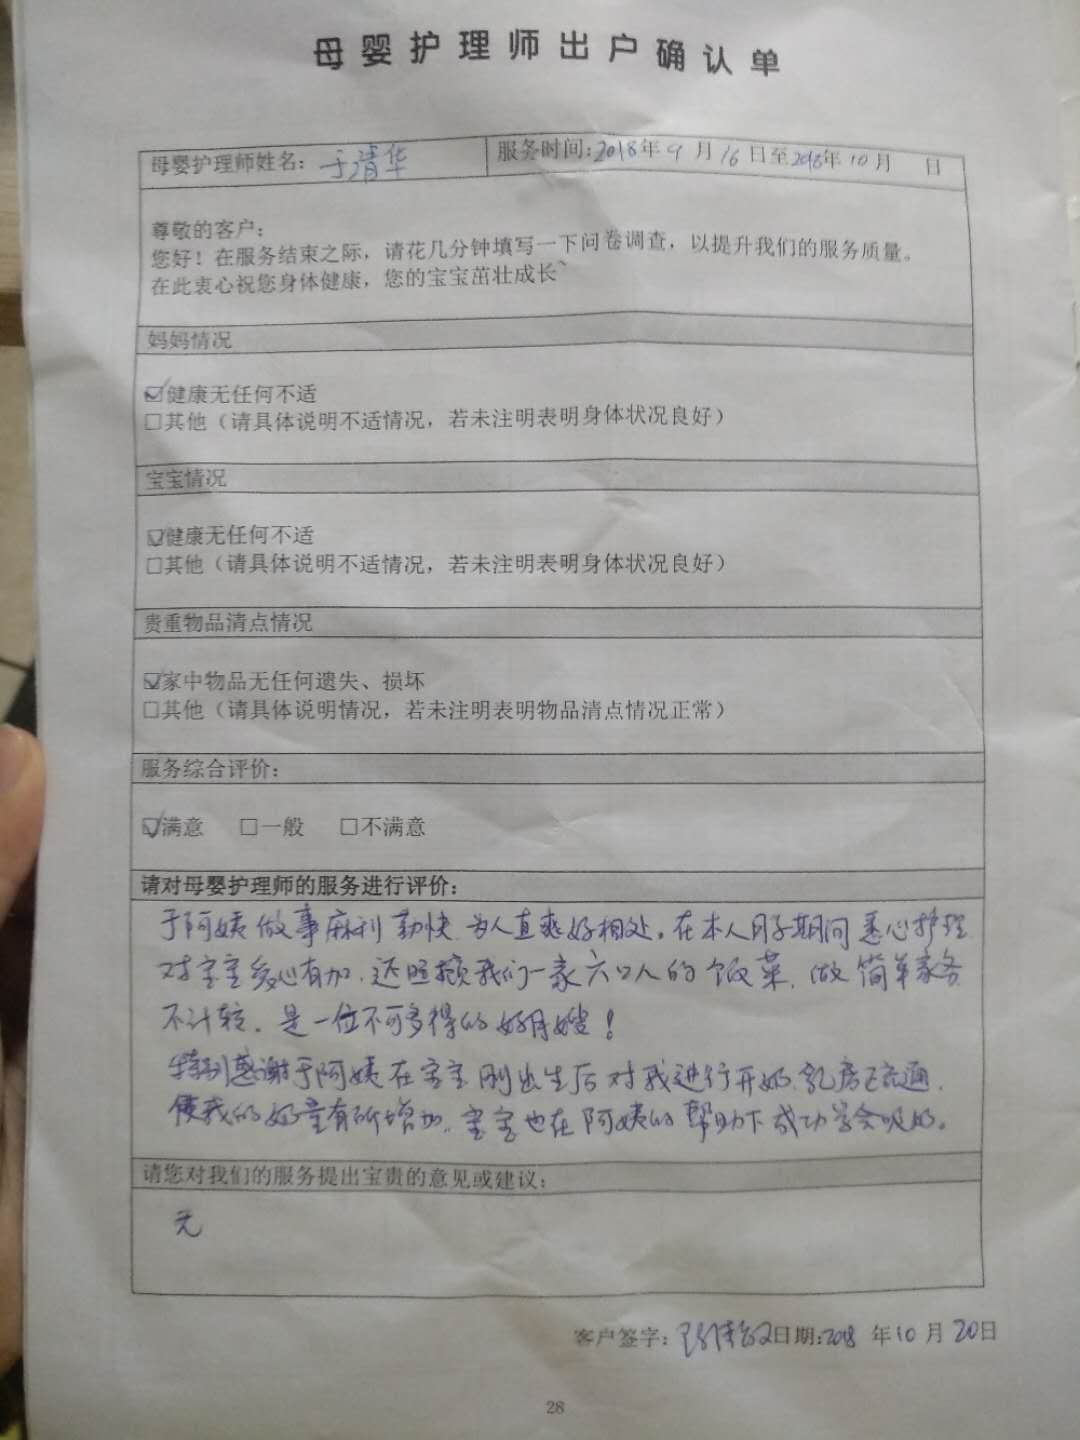 母婴护理师出户确认单
母婴护理师姓名：于清华 服务时间：2018年9月16日至2018年10月 日
尊敬的客户：
您好！在服务结束之际，请花几分钟填写一下问卷调查，以提升我们的服务质量。
在此衷心祝您身体健康，您的宝宝茁壮成长
妈妈情况
☑健康无任何不适
□其他（请具体说明不适情况，若未注明表明身体状况良好）
宝宝情况
☑健康无任何不适
□其他（请具体说明不适情况，若未注明表明身体状况良好）
贵重物品清点情况
☑家中物品无任何遗失、损坏
□其他（请具体说明情况，若未注明表明物品清点情况正常）
服务综合评价：
☑满意 □一般 □不满意
请对母婴护理师的服务进行评价：
于阿姨做事麻利勤快，为人直爽好相处。在本人月子期间悉心护理
对宝宝爱心有加，还照顾我们一家六口人的饭菜，做简单家务
不计较。是一位不可多得的好月嫂！
特别感谢于阿姨在宝宝刚出生后对我进行开奶，乳房疏通，
使我的奶量有所增加。宝宝也在阿姨的帮助下成功学会吸奶。
请您对我们的服务提出宝贵的意见或建议：
无
客户签字： 日期：2018年10月20日
28